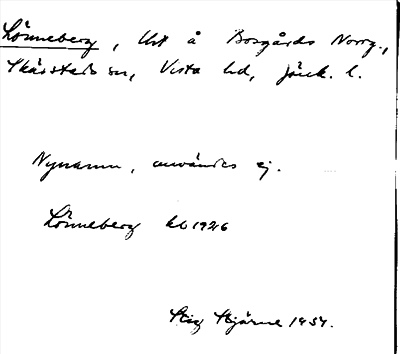 Lönneberg, Urt å Bosgårds Norrg.,
Skärstads sn, Vista hd, Jönk. l.
Nynamn, användes ej.
Lönneberg kb 1926
Stig Hjärne 1934.